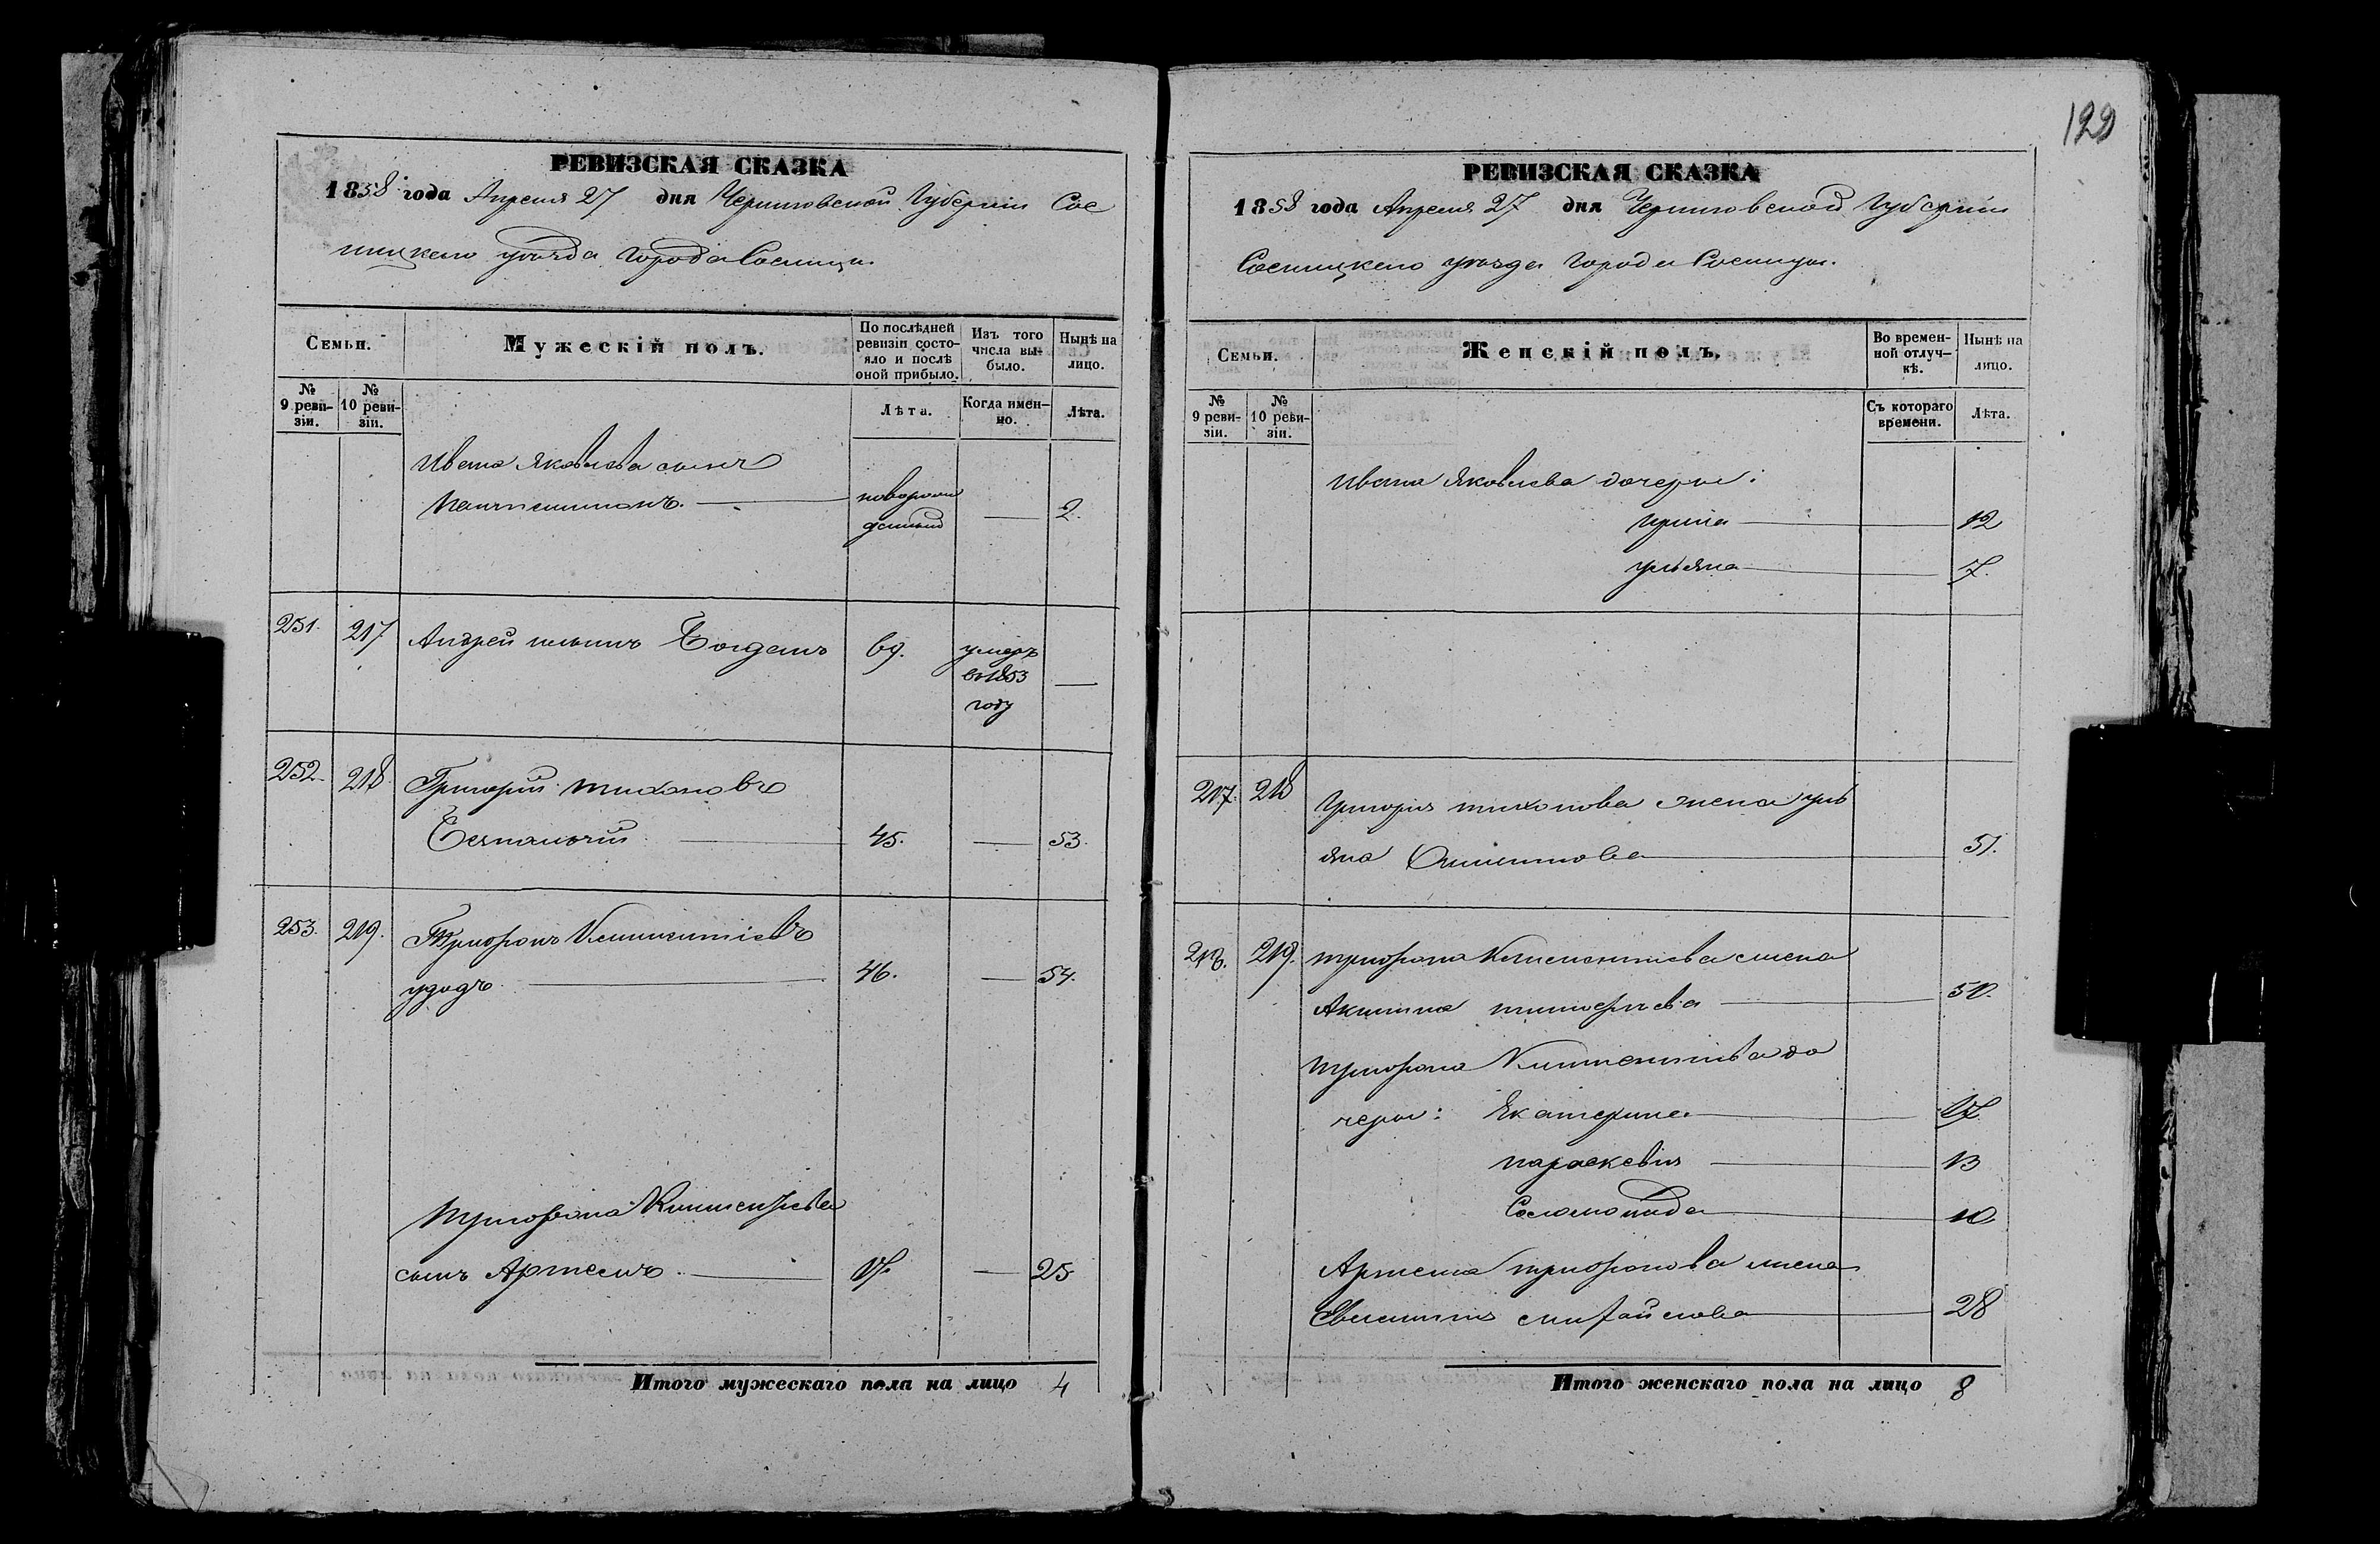 122
РЕВИЗСКАЯ СКАЗКА
1858 года Апреля 27 дня Черниговской Губерніи Сос
ницкаго уѣзда Города Сосницы.
Семьи.
Мужескій полъ.
По послѣдней ревизіи состояло и послѣ оной прибыло.
Изъ того числа выбыло.
Нынѣ на лицо.
№ 9 ревизіи.
№ 10 ревизіи.
Лѣта.
Когда именно.
Лѣта.
Ивана Яковлева сынъ
Пантелимонъ. новорож
денный 2.
251. 217 Андрей Ильинъ 69. умеръ
въ 1853
году
252. 218 Григорій Тихоновъ
45. 53.
253. 219. Трифонъ Климентіевъ
Удодъ 46. 54.
Трифона Климентіева
сынъ Артемъ 17. 25
Итого мужескаго пола на лицо 4
РЕВИЗСКАЯ СКАЗКА
1858 года Апреля 27 дня Черниговской Губерніи
Сосницкаго уѣзда Города Сосницы.
Семьи.
Женскій полъ.
Во временной отлучкѣ.
Нынѣ на лицо.
№ 9 ревизіи.
№ 10 ревизіи.
Съ котораго времени.
Лѣта.
Ивана Яковлева дочери:
Ирина 12
Ульяна 7.
217. 218 Григорія Тихонова жена Уль
яна 51.
218. 219. Трифона Климентіева жена
Акилина Тимофѣева 50.
Трифона Климентіева до
чери: Екатерина 17
Параскевія 13
Соломонида 10
Артема Трифонова жена
Михайлова 28
Итого женскаго пола на лицо 8